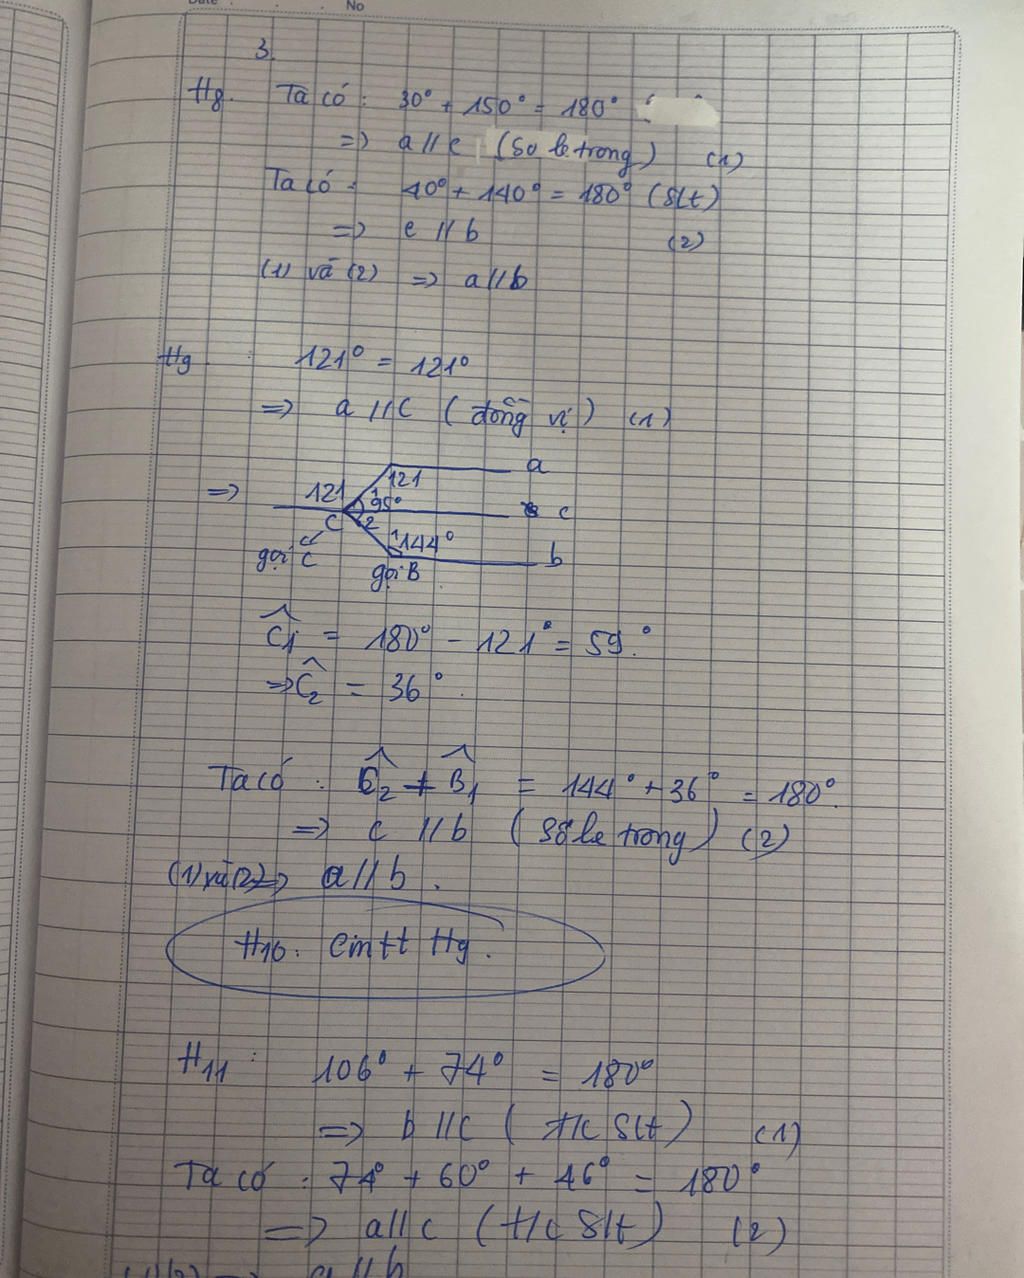 No
3.
H8. Ta có: 30° + 150° = 180°
=> a // c (so le trong) (1)
Ta có: 40° + 140° = 180° (Slt)
=> c // b (2)
(1) và (2) => a // b
H9: 121° = 121°
=> a // c (đồng vị) (1)
=> 121 121 a
1 95° c
C 2
1 144° b
gọi C
gọi B
Ĉ1 = 180° - 121° = 59°.
=> Ĉ2 = 36°.
Ta có: Ĉ2 + B̂1 = 144° + 36° = 180°.
=> c // b (sole trong) (2)
(1) và (2) => a // b.
H10: Cmtt H9.
H11: 106° + 74° = 180°
=> b // c (t/c Slt) (1)
Ta có: 74° + 60° + 46° = 180°
=> a // c (t/c Slt) (2)
a // b